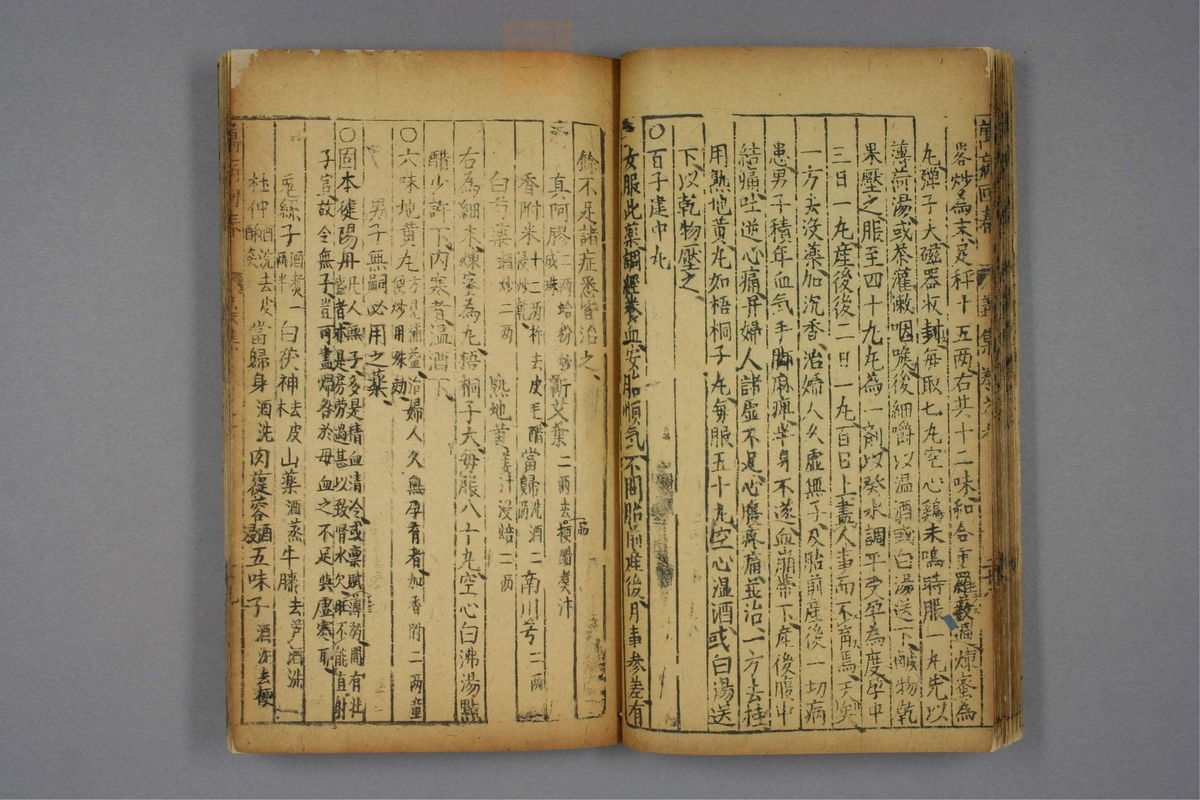 萬病回春
義集 卷之六
咯炒為末足秤十五兩右共十二味和合重羅數過煉蜜為
丸彈子大磁器收封每取七丸空心鷄未鳴時服一丸先以
薄荷湯或茶灌漱咽喉後細嚼以温酒或白湯送下醎物乾
果壓之服至四十九丸為一劑以癸水調平受孕為度孕中
三日一丸産後後二日一丸百日上盡人事而不育焉天矣
一方去沒藥加沉香治婦人久虛無子及胎前産後一切病
患男子積年血气手脚麻痺半身不遂血崩帶下産後腹中
結痛吐逆心痛并婦人諸虛不足心腹疼痛並治一方去桂
用熟地黄丸如梧桐子丸每服五十丸空心温酒或白湯送
下以乾物壓之
〇百子建中丸
女服此藥調經養血安胎順气不問胎前産後月事参差有
餘不足諸症悉皆治之
真阿膠二兩蛤粉炒成珠 蘄艾葉二兩去梗醋煑汁
香附米十二兩杵去皮毛醋浸炒乾 當歸洗酒二兩 南川芎二兩
白芍藥酒炒二兩 熟地黄姜汁浸焙二兩
右為細末煉蜜為丸梧桐子大每服八十丸空心白沸湯點
醋少許下内寒者温酒下
〇六味地黄丸方見補益治婦人久無孕育者加香附二兩童便炒用殊効
男子無嗣必用之藥
〇固本徤陽丹凡人無子多是精血清冷或禀賦薄弱間有壮盛者亦是房劳過甚以致腎水欠旺不能直射
子宫故令無子豈可盡歸咎於母血之不足與虛寒耳
兎絲子酒煑一兩半 白茯神去皮木 山藥酒蒸 牛膝去芦酒洗
杜仲酒洗去皮酥炙 當歸身酒洗 肉蓯蓉酒浸 五味子酒洗去梗